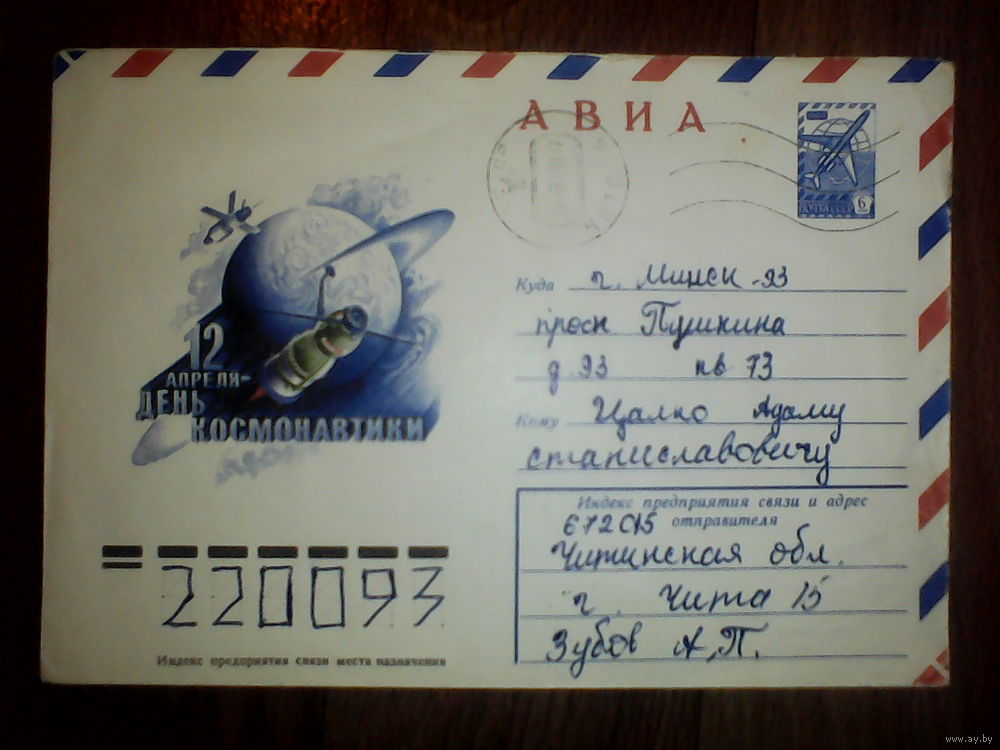 АВИА
6
12
АПРЕЛЯ-
ДЕНЬ
КОСМОНАВТИКИ
Куда г. Минск -93
просп Пушкина
д 93 кв 73
Кому Цалко Адаму
станиславовичу
Индекс предприятия связи и адрес
672015 отправителя
Читинская обл.
г. Чита 15
Зубов А.П.
220093
Индекс предприятия связи места назначения
www.ay.by